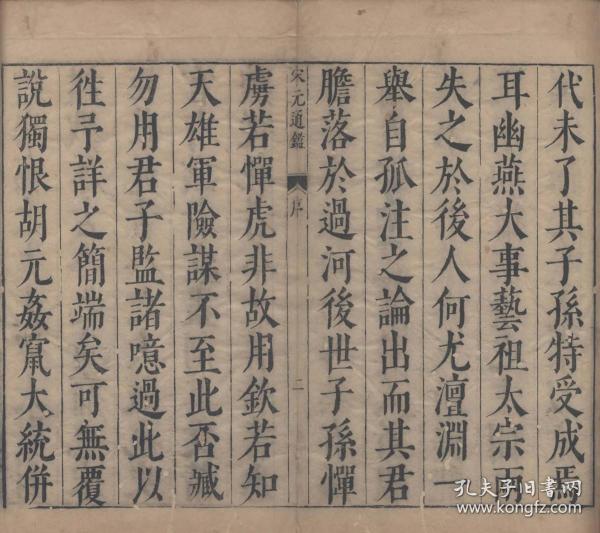 代未了其子孫特受成焉
耳幽燕大事藝祖太宗兩
失之於後人何尤澶淵一
舉自孤注之論出而其君
膽落於過河後世子孫憚
宋元通鑑 序 二
虜若憚虎非故用欽若知
天雄軍險謀不至此否臧
勿用君子監諸噫過此以
徃予詳之簡端矣可無覆
說獨恨胡元姦竄大統併
孔夫子旧书网
www.kongfz.com